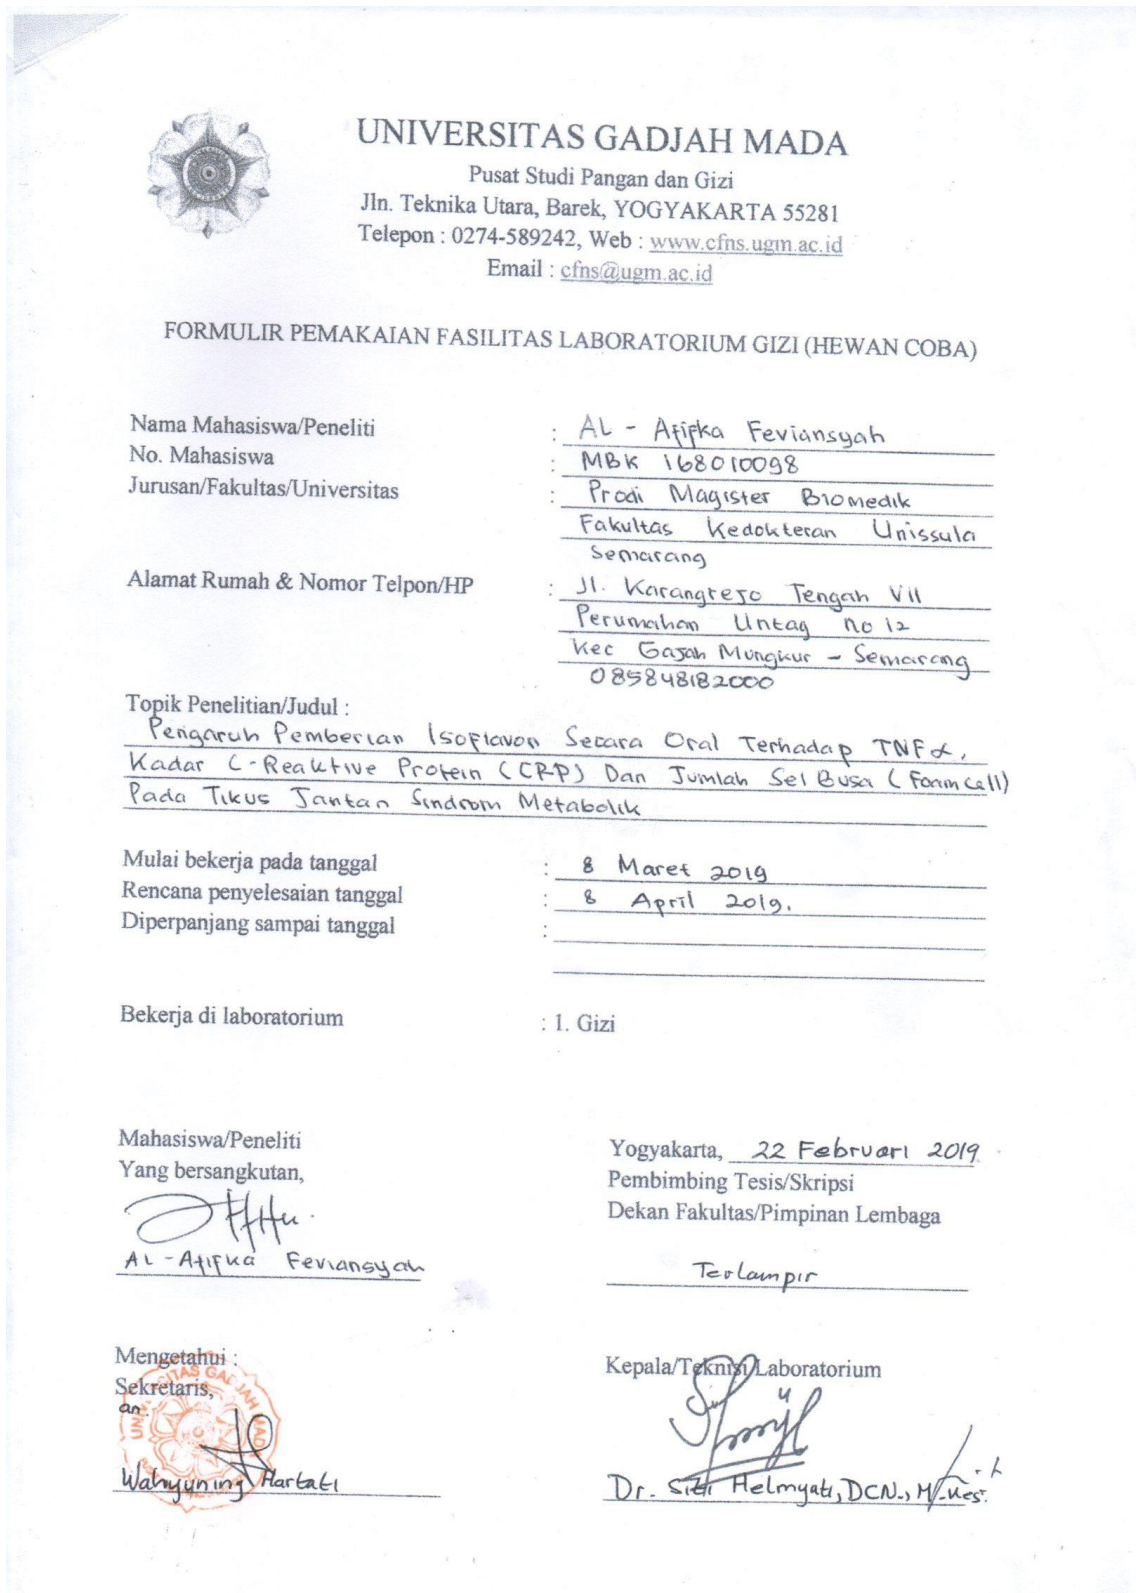 UNIVERSITAS GADJAH MADA
Pusat Studi Pangan dan Gizi
Jln. Teknika Utara, Barek, YOGYAKARTA 55281
Telepon : 0274-589242, Web : www.cfns.ugm.ac.id
Email : cfns@ugm.ac.id
FORMULIR PEMAKAIAN FASILITAS LABORATORIUM GIZI (HEWAN COBA)
Nama Mahasiswa/Peneliti : AL - Afifka Feviansyah
No. Mahasiswa : MBK 168010098
Jurusan/Fakultas/Universitas : Prodi Magister Biomedik
Fakultas Kedokteran Unissula
Semarang
Alamat Rumah & Nomor Telpon/HP : Jl. Karangrejo Tengah VII
Perumahan Untag no 12
Kec Gajah Mungkur - Semarang
085848182000
Topik Penelitian/Judul :
Pengaruh Pemberian Isoflavon Secara Oral Terhadap TNFα,
Kadar C-Reaktive Protein (CRP) Dan Jumlah Sel Busa (Foam Cell)
Pada Tikus Jantan Sindrom Metabolik
Mulai bekerja pada tanggal : 8 Maret 2019
Rencana penyelesaian tanggal : 8 April 2019.
Diperpanjang sampai tanggal :
Bekerja di laboratorium : 1. Gizi
Mahasiswa/Peneliti
Yang bersangkutan,
AL - Afifka Feviansyah
Yogyakarta, 22 Februari 2019.
Pembimbing Tesis/Skripsi
Dekan Fakultas/Pimpinan Lembaga
Terlampir
Mengetahui :
Sekretaris,
an.
UNIVERSITAS GADJAH MADA
Wahyuning Hartati
Kepala/Teknisi Laboratorium
Dr. Siti Helmyati, DCN., M.Kes.